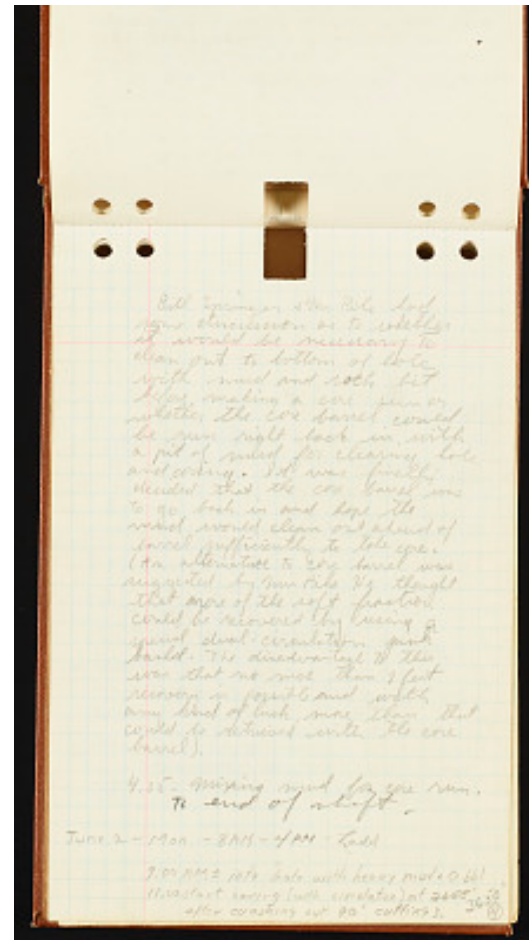 some discussion as to whether
it would be necessary to
clean out to bottom of hole
with mud and rock bit
before making a core run or
whether the core barrel could
be run right back in with
a pit of mud for clearing hole
and coring. It was finally
decided that the core barrel was
to go back in and hope the
mud would clean out ahead of
barrel sufficiently to take core.
(An alternative to core barrel was
suggested by Mr. He thought
that more of the soft fraction
could be recovered by using a
special dual-circulation junk
basket. The disadvantage to this
was that no more than 1 feet
recovery is possible and with
any kind of luck more than that
could be retrieved with the core
barrel).
4:35 - mixing mud for core run.
To end of shift.
June 2 - Mon - 8AM - 4PM - Ladd
into hole with heavy mud
start coring (with circulation) at
after washing out 90' cuttings.